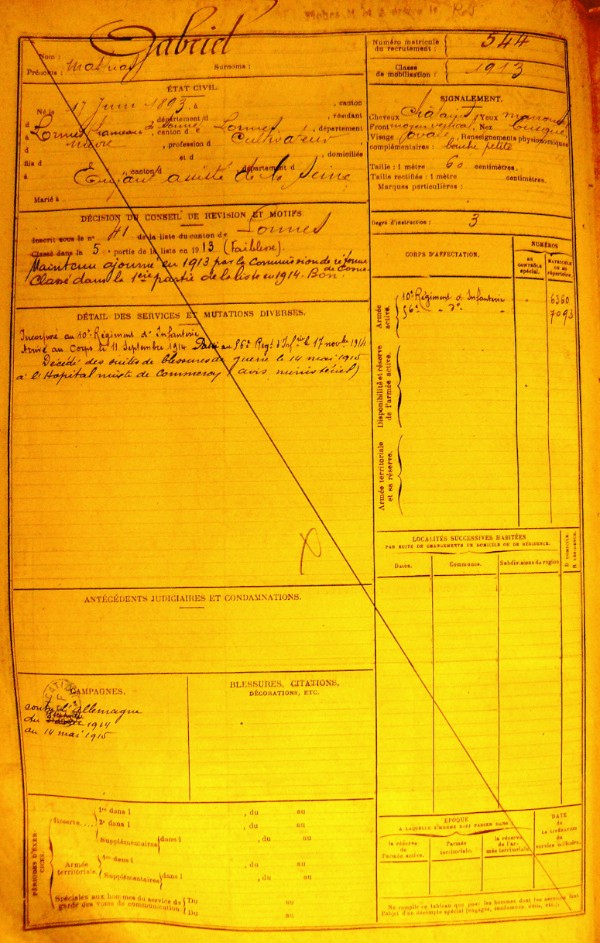 Gabriel
Nom :
Prénoms :
Surnoms :
Numéro matricule
du recrutement :
544
Classe
de mobilisation :
1913
ÉTAT CIVIL.
Né le 17 Juin 1893, à , canton
d , département d , résidant
à Lormes, canton de Lormes, département
d Nièvre, profession d Cultivateur
fils d et d , domiciliés
à , canton d , département d
Enfant assisté de la Seine
Marié à
SIGNALEMENT.
Cheveux Châtains Yeux marrons
Front moyen vertical, Nez busqué
Visage ovale, Renseignements physionomiques
complémentaires : bouche petite
Taille : 1 mètre 60 centimètres.
Taille rectifiée : 1 mètre centimètres.
Marques particulières :
Degré d'instruction : 3
DÉCISION DU CONSEIL DE RÉVISION ET MOTIFS.
Inscrit sous le n° 41 de la liste du canton de Lormes
Classé dans la 5 partie de la liste en 1913 (Faiblesse).
Maintenu ajourné en 1913 par la Commission de réforme
de Cosne
Classé dans la 1ère partie de la liste en 1914. Bon.
DÉTAIL DES SERVICES ET MUTATIONS DIVERSES.
Incorporé au 10e Régiment d'Infanterie
Arrivé au Corps le 11 Septembre 1914 Passé au 56e Regt d'Infrie le 17 novbre 1914
Décédé des suites de blessures de guerre le 14 mai 1915
à l'Hopital mixte de Commercy (avis ministériel)
CORPS D'AFFECTATION.
NUMÉROS
au contrôle spécial.
matricule ou au répertoire.
Armée active.
10e Régiment d'Infanterie 6360
56e - do - 7093
Disponibilité et réserve de l'armée active.
Armée territoriale et sa réserve.
LOCALITÉS SUCCESSIVES HABITÉES
PAR SUITE DE CHANGEMENTS DE DOMICILE OU DE RÉSIDENCE.
Dates.
Communes.
Subdivisions de région
D. domicile.
R. résidence.
ANTÉCÉDENTS JUDICIAIRES ET CONDAMNATIONS.
CAMPAGNES.
contre l'Allemagne
du 1914
au 14 mai 1915
BLESSURES, CITATIONS,
DÉCORATIONS, ETC.
PÉRIODES D'EXERCICES.
Réserve....
1re dans l , du au
2e dans l , du au
Supplémentaires dans l , du au
, du au
Armée territoriale.
1re dans l , du au
Supplémentaires dans l , du au
Spéciales aux hommes du service de garde des voies de communication. Du au
Du au
ÉPOQUE
À LAQUELLE L'HOMME DOIT PASSER DANS
la réserve de l'armée active.
l'armée territoriale.
la réserve de l'armée territoriale.
DATE
de la LIBÉRATION du service militaire.